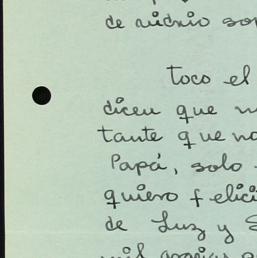 de
toco el
dicen que
tante que no
Papá, solo
quiero felici
de Luz y S
mil gracias